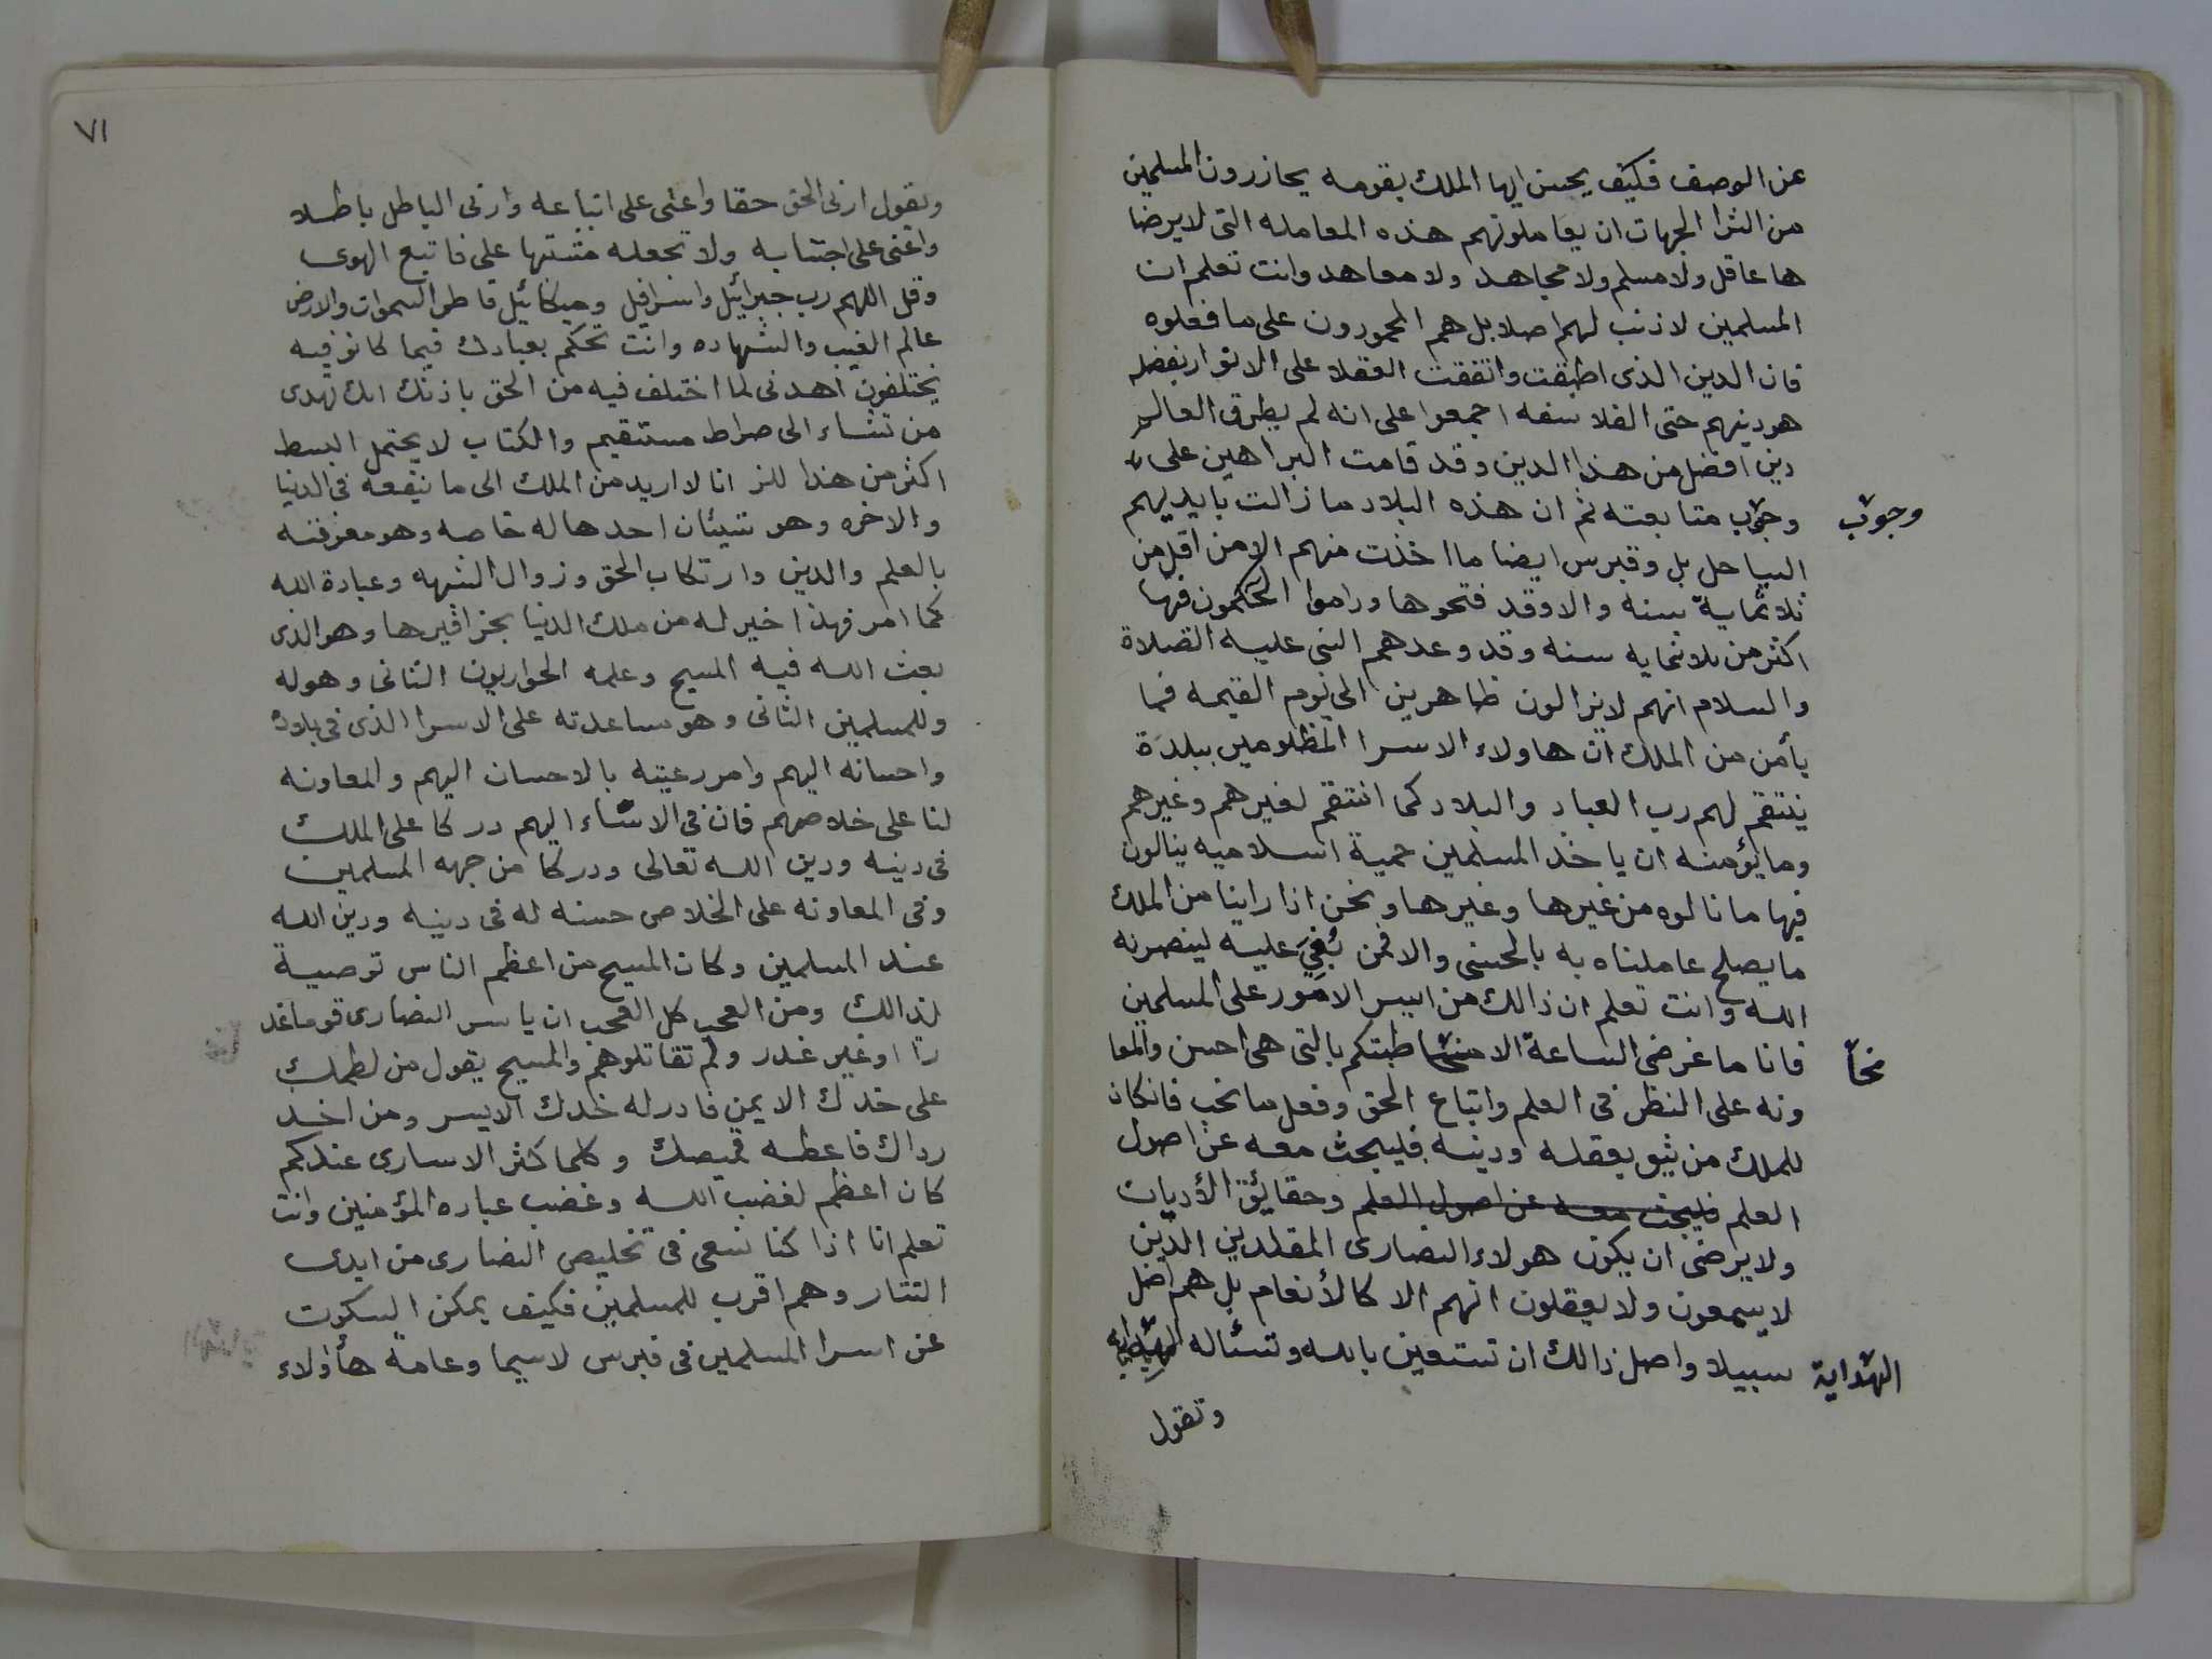 عن الوصف فكيف يحسن ايها الملك بقومه يحازرون المسلمين
من اكثر الجهات ان يعاملونهم هذه المعامله التي لا يرضا
ها عاقل ولا مسلم ولا مجاهد ولا معاهد وانت تعلم ان
المسلمين لا ذنب لهم اصلا بل هم المحمودون على ما فعلوه
فان الدين الذى اطبقت واتفقت العقلا على الاقرار بفضله
هو دينهم حتى الفلاسفه اجمعوا على انه لم يطرق العالم
دين افضل من هذا الدين وقد قامت البراهين على
وجوب متابعته ثم ان هذه البلاد ما زالت بايديهم
وجوب
الساحل بل وقبرس ايضا ما اخذت منهم الا من اقل من
ثلاثماية سنه والا وقد فتحوها وداموا الحكمون فيها
اكثر من ثلاثمايه سنه وقد وعدهم النبي عليه الصلاة
والسلام انهم لا يزالون ظاهرين الى يوم القيمه فما
يأمن من الملك ان هاولاء الاسرا المظلومين ببلدة
ينتقم لهم رب العباد والبلاد كما انتقم لغيرهم وغيرهم
وما يؤمنه ان ياخذ المسلمين حمية اسلاميه ينالون
فيها ما نالوه من غيرها وغيرها ونحن اذا راينا من الملك
ما يصلح عاملناه به بالحسنى والا فمن بُغِيَ عليه لينصرنه
الله وانت تعلم ان ذالك من ايسر الامور على المسلمين
فانا ما غرضى الساعة الا مخاطبتكم بالتى هى احسن والمعا
مخا
ونه على النظر فى العلم واتباع الحق وفعل ما نحب فانكان
للملك من يثق بعقله ودينه فليبحث معه عن اصول
العلم فليبحث معه عن اصول العلم وحقايق الأديان
ولا يرضى ان يكون هولاء النصارى المقلدين الذين
لا يسمعون ولا يعقلون انهم الا كالأنعام بل هم اضل
سبيلا واصل ذالك ان تستعين بالله وتسئاله الهداية
الهداية
وتقول
٧١
وتقول ارنى الحق حقا واعنى على اتباعه وارنى الباطل باطلا
واعنى على اجتنابه ولا تجعله مشتبها على فاتبع الهوى
وقل اللهم رب جبرائيل واسرافيل وميكائيل فاطر السموات والارض
عالم الغيب والشهاده وانت تحكم بعبادك فيما كانو فيه
يختلفون اهدنى لما اختلف فيه من الحق باذنك انك تهدى
من تشاء الى صراط مستقيم والكتاب لا يحتمل البسط
اكثر من هذا لكن انا لا اريد من الملك الى ما ينفعه فى الدنيا
والاخره وهو شيئان احدها له خاصه وهو معرفته
بالعلم والدين وارتكاب الحق وزوال الشبهه وعبادة الله
كما امر فهذا خير له من ملك الدنيا بحزافيرها وهو الذى
بعث الله فيه المسيح وعلمه الحواريون الثانى وهو له
وللمسلمين الثانى وهو مساعدته على الاسرا الذى فى بلاده
واحسانه اليهم وامر رعيته بالاحسان اليهم والمعاونه
لنا على خلاصهم فان فى الاساء اليهم دركا على الملك
فى دينه ودين الله تعالى ودركا من جهه المسلمين
وفى المعاونه على الخلاص حسنه له فى دينه ودين الله
عند المسلمين وكان المسيح من اعظم الناس توصية
بذالك ومن العجب كل العجب ان ياسر النصارى قوما غد
را او غير غدر ولم تقاتلوهم والمسيح يقول من لطمك
على خدك الايمن فادر له خدك الايسر ومن اخذ
رداك فاعطه قميصك وكلما كثر الاسارى عندكم
كان اعظم لغضب الله وغضب عباده المؤمنين وانت
تعلم انا اذا كنا نسعى فى تخليص النصارى من ايدى
التتار وهم اقرب للمسلمين فكيف يمكن السكوت
عن اسرا المسلمين فى قبرس لاسيما وعامة هاأولاء